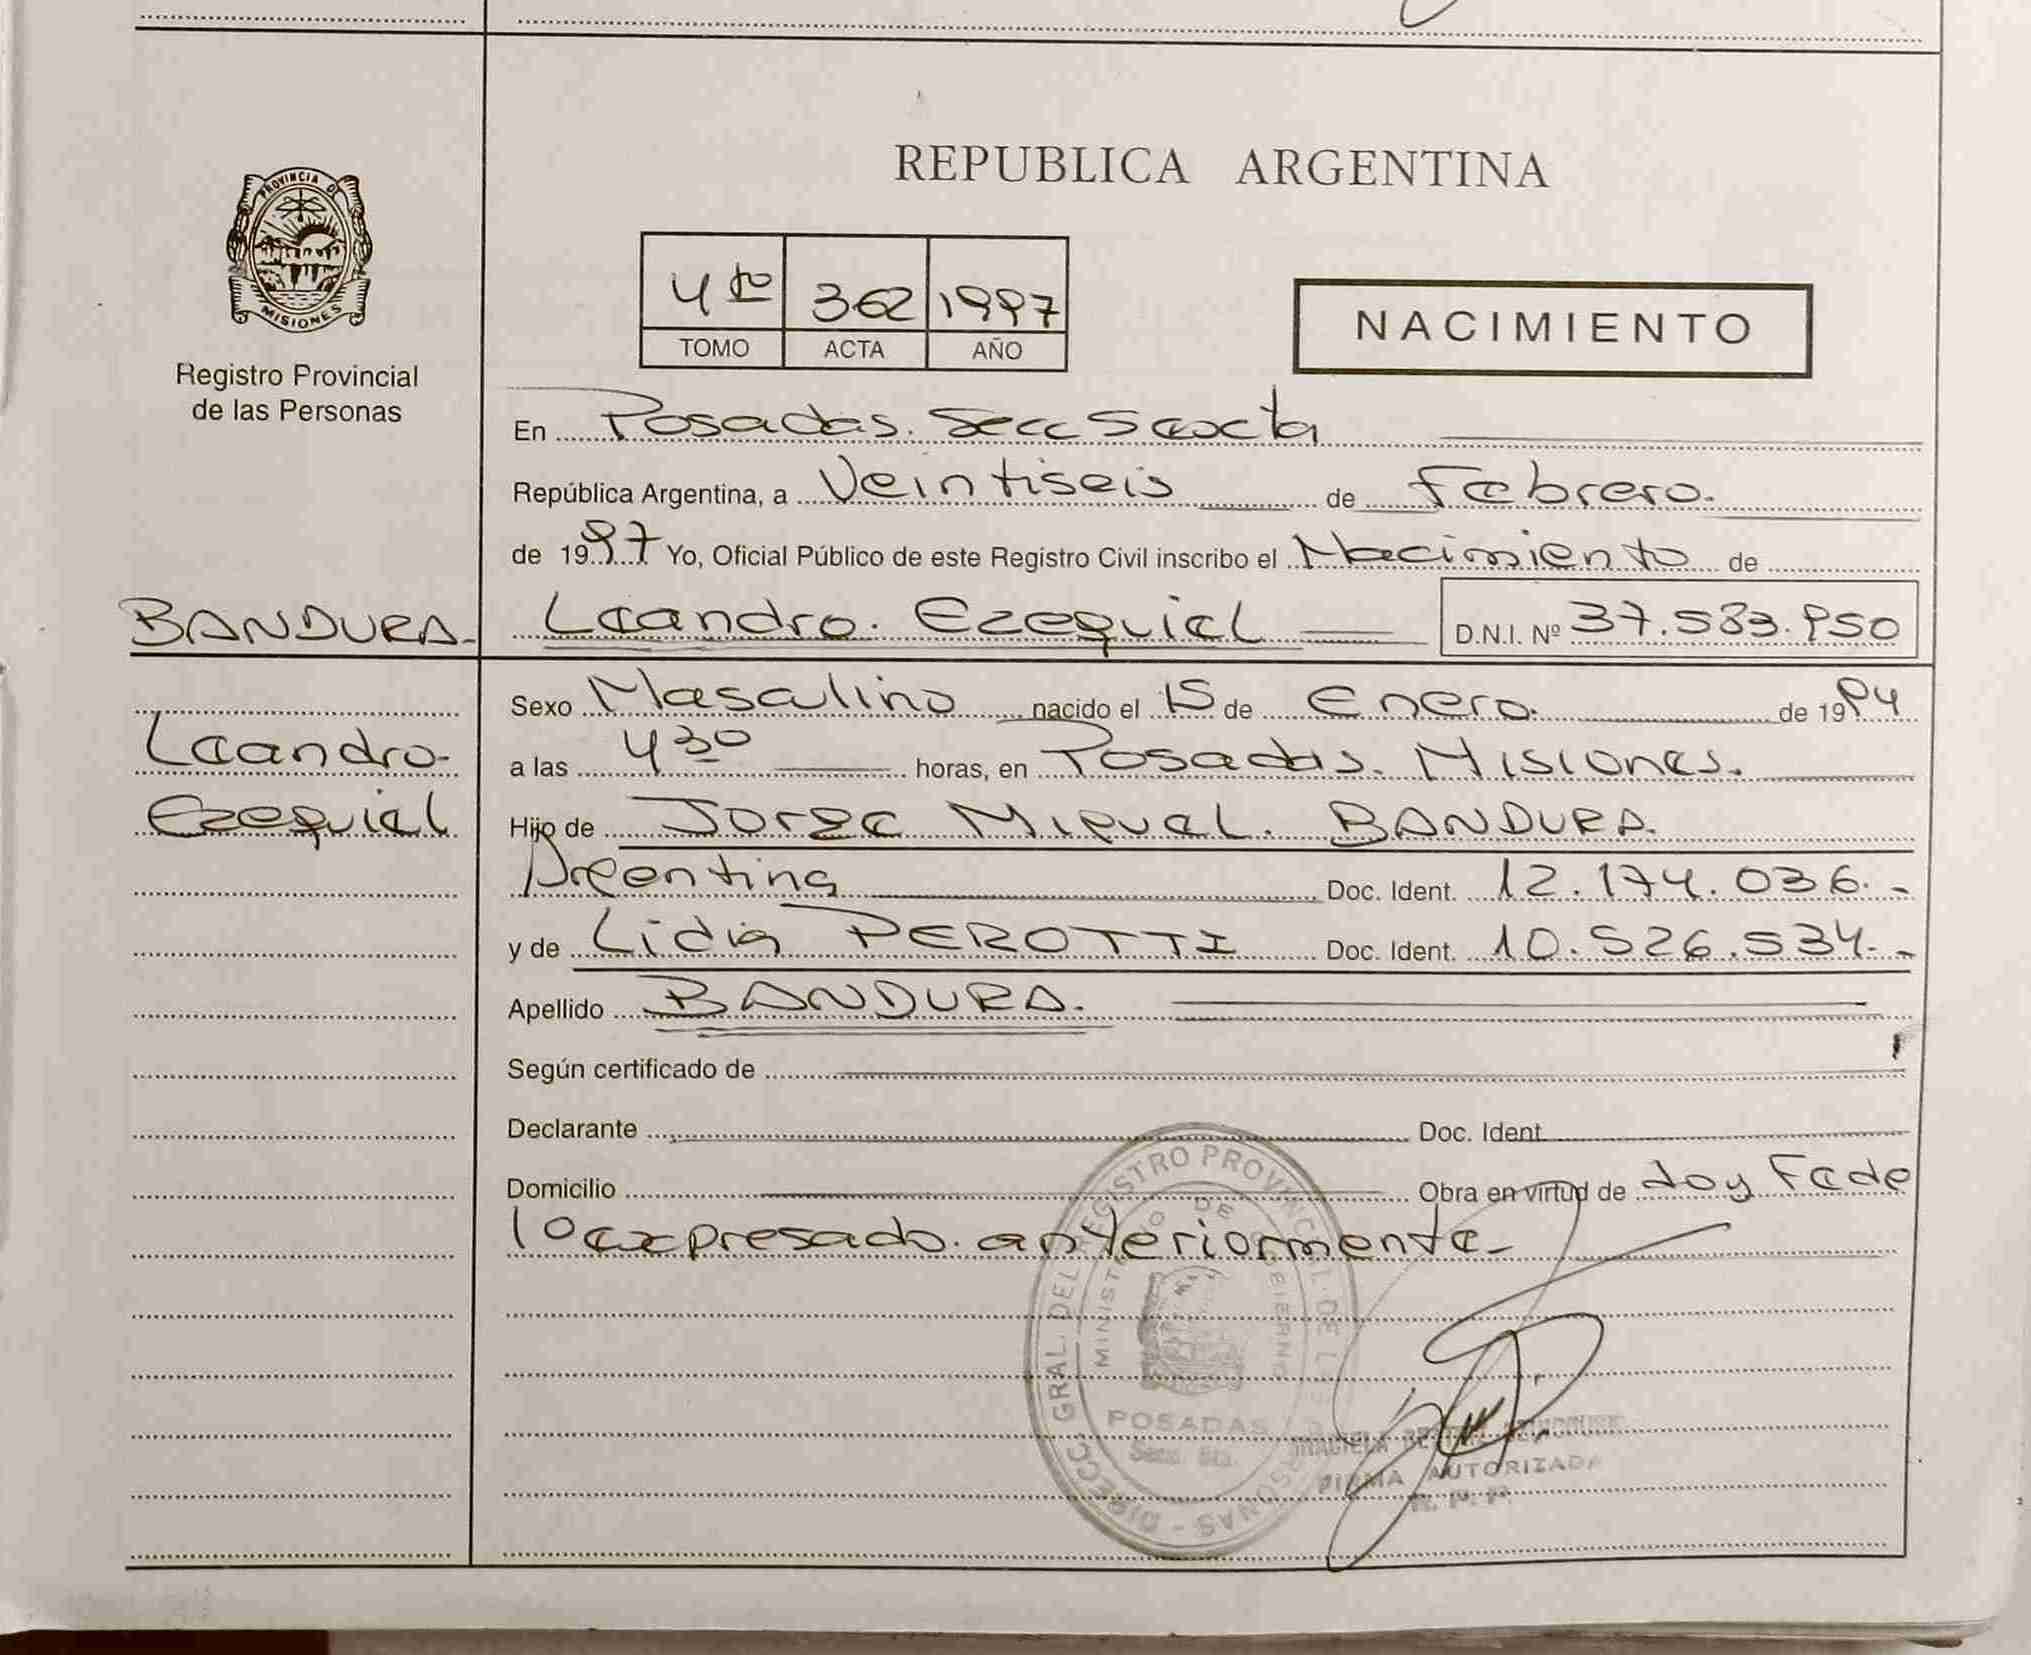 PROVINCIA DE
MISIONES
Registro Provincial
de las Personas
REPUBLICA ARGENTINA
4to 362 1997
TOMO ACTA AÑO
NACIMIENTO
En Posadas. Secc Sexta
República Argentina, a Veintiseis de Febrero.
de 1997 Yo, Oficial Público de este Registro Civil inscribo el Nacimiento de
BANDURA. Leandro. Ezequiel D.N.I. Nº 37.583.950
Sexo Masculino nacido el 15 de Enero. de 1994
Leandro.
a las 4 30 horas, en Posadas. Misiones.
Ezequiel
Hijo de Jorge Miguel. BANDURA.
Argentina Doc. Ident. 12.174.036.-
y de Lidia PEROTTI Doc. Ident. 10.526.534.-
Apellido BANDURA.
Según certificado de
Declarante Doc. Ident.
Domicilio Obra en virtud de doy Fe de
lo expresado. anteriormente-
DIRECC. GRAL. DEL REGISTRO PROVINCIAL DE LAS PERSONAS -
MINISTERIO DE GOBIERNO
POSADAS
Secc. 6ta.
GRACIELA
FIRMA AUTORIZADA
R. P. P.